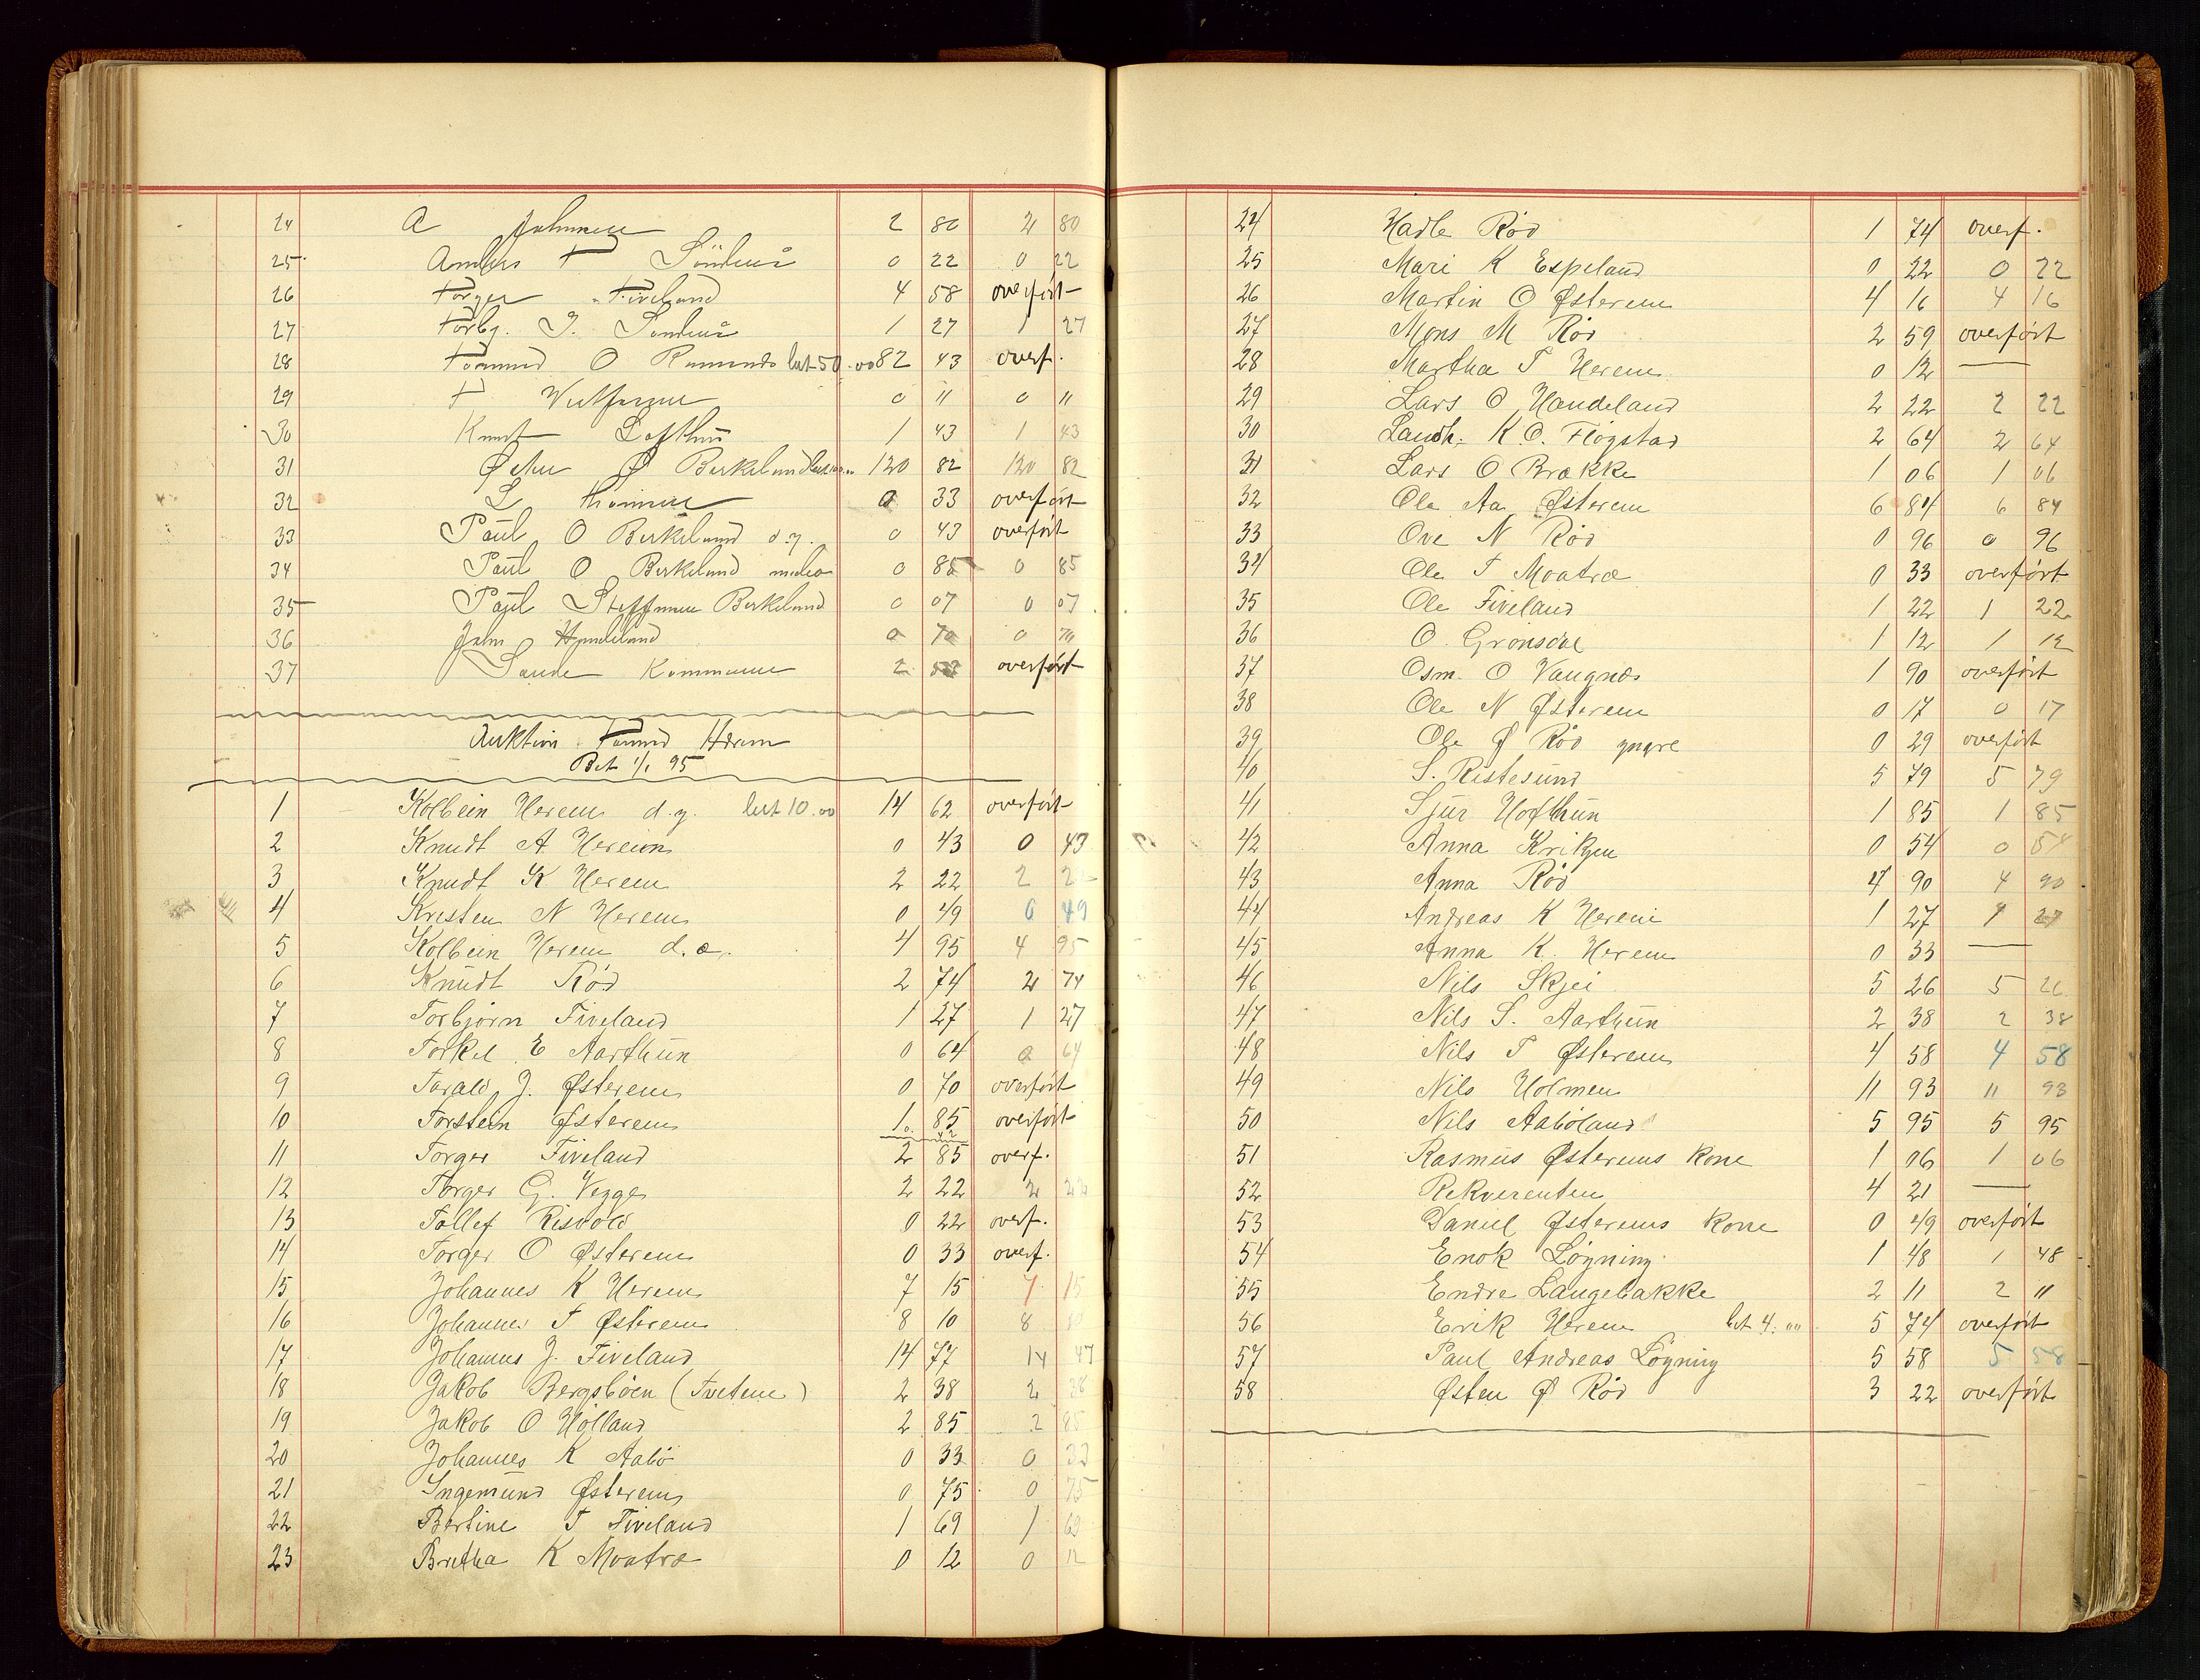 24 A Johnsen 2 80 2 80
25 Anders T Söndenå 0 22 0 22
26 Torger Fiveland 4 58 overført
27 Torbj. J. Söndenå 1 27 1 27
28 Tormod O 50.00 82 43 overf.
29 T 0 11 0 11
30 Knut Lofthus 1 43 1 43
31 Østen Ø Birkeland 120 82 120 82
32 L 0 33 overført
33 Paul O Birkeland d.y. 0 43 overført
34 Paul O Birkeland 0 85 0 85
35 Paul Steffensen Birkeland 0 07 0 07
36 John Handeland 0 70 0 70
37 Sande Kommune 2 overført
Auktion Tormod Herem
Bet 1/1 95
1 Kolbein Herem d.y. bet 10.00 14 62 overført
2 Knudt A Hereim 0 43 0 43
3 Knudt K Herem 2 22 2 22
4 Kristen N Herem 0 49 0 49
5 Kolbein Herem d.æ. 4 95 4 95
6 Knudt Rød 2 74 2 74
7 Torbjørn Fiveland 1 27 1 27
8 Torkel E Aarthun 0 64 0 64
9 Tarald J. Østerem 0 70 overført
10 Torstein Østerem 1 85 overført
11 Torger Fiveland 2 85 overf.
12 Torger G. Vegge 2 22 2 22
13 Tollef Risvold 0 22 overf.
14 Torger O Østerem 0 33 overf.
15 Johannes K Herem 7 15 7 15
16 Johannes T Østerem 8 10 8 10
17 Johannes J. Fiveland 14 77 14 47
18 Jakob Bergsbøen (Tvetene) 2 38 2 38
19 Jakob O Hølland 2 85 2 85
20 Johannes K Aabø 0 33 0 33
21 Ingemund Østerem 0 75 0 75
22 Bertine T Fiveland 1 69 1 69
23 Bretha K Moatræ 0 12 0 12
24 Hadle Rød 1 74 overf.
25 Mari K Espeland 0 22 0 22
26 Martin O Østerem 4 16 4 16
27 Mons M Rød 2 59 overført
28 Martha T Herem 0 12 —
29 Lars O Handeland 2 22 2 22
30 Landh. K O. Fløgstad 2 64 2 64
31 Lars O Brække 1 06 1 06
32 Ole Aa Østerem 6 84 6 84
33 Ove N Rød 0 96 0 96
34 Ole T Moatræ 0 33 overført
35 Ole Fiveland 1 22 1 22
36 O. Grønsdal 1 12 1 12
37 Osm. O Vaugnæs 1 90 overført
38 Ole N Østerem 0 17 0 17
39 Ole Ø Rød yngre 0 29 overført
40 S. Ristesund 5 79 5 79
41 Sjur Hofthun 1 85 1 85
42 Anna Krikjen 0 54 0 54
43 Anna Rød 4 90 4 90
44 Andreas K Hereim 1 27 1 27
45 Anna K. Herem 0 33 —
46 Nils Skjei 5 26 5 26
47 Nils S. Aarthun 2 38 2 38
48 Nils T Østerem 4 58 4 58
49 Nils Holmen 11 93 11 93
50 Nils Aabøland 5 95 5 95
51 Rasmus Østerems Kone 1 06 1 06
52 Rekvirenten 4 21 —
53 Daniel Østerems Kone 0 49 overført
54 Enok Løgning 1 48 1 48
55 Endre Langebakke 2 11 2 11
56 Erik Herem bet 4.00 5 74 overført
57 Paul Andreas Løgning 5 58 5 58
58 Østen Ø Rød 3 22 overført